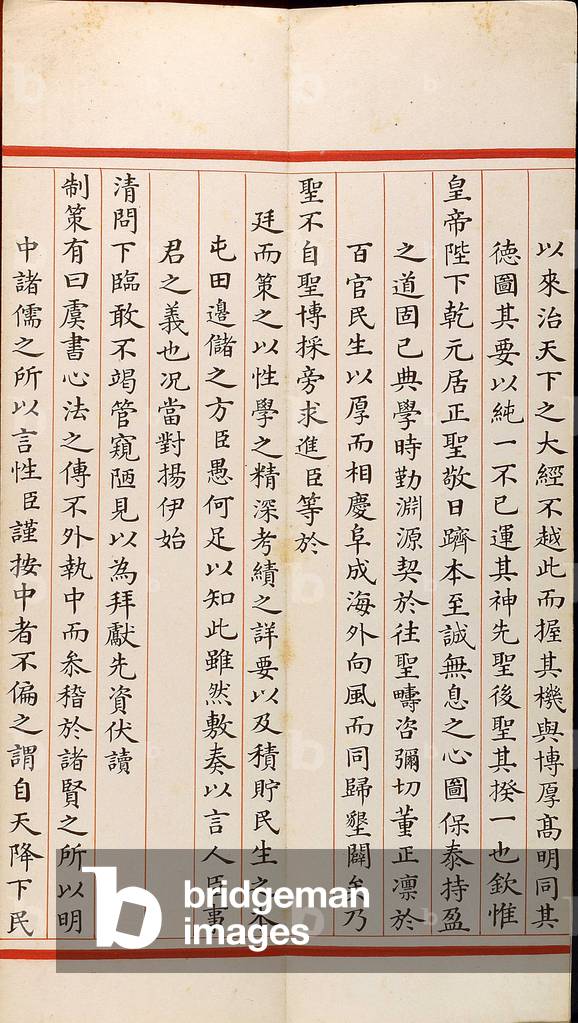 以來治天下之大經不越此而握其機與博厚髙明同其
徳圖其要以純一不已運其神先聖後聖其揆一也欽惟
皇帝陛下乾元居正聖敬日躋本至誠無息之心圖保泰持盈
之道固已典學時勤淵源契於往聖疇咨彌切董正凛於
百官民生以厚而相慶阜成海外向風而同歸墾闢矣乃
聖不自聖博採旁求進臣等於
廷而策之以性學之精深考績之詳要以及積貯民生之本
屯田邊儲之方臣愚何足以知此雖然敷奏以言人臣事
君之義也况當對揚伊始
清問下臨敢不竭管窺陋見以為拜獻先資伏讀
制策有曰虞書心法之傳不外執中而叅稽於諸賢之所以明
中諸儒之所以言性臣謹按中者不偏之謂自天降下民
bridgeman
images